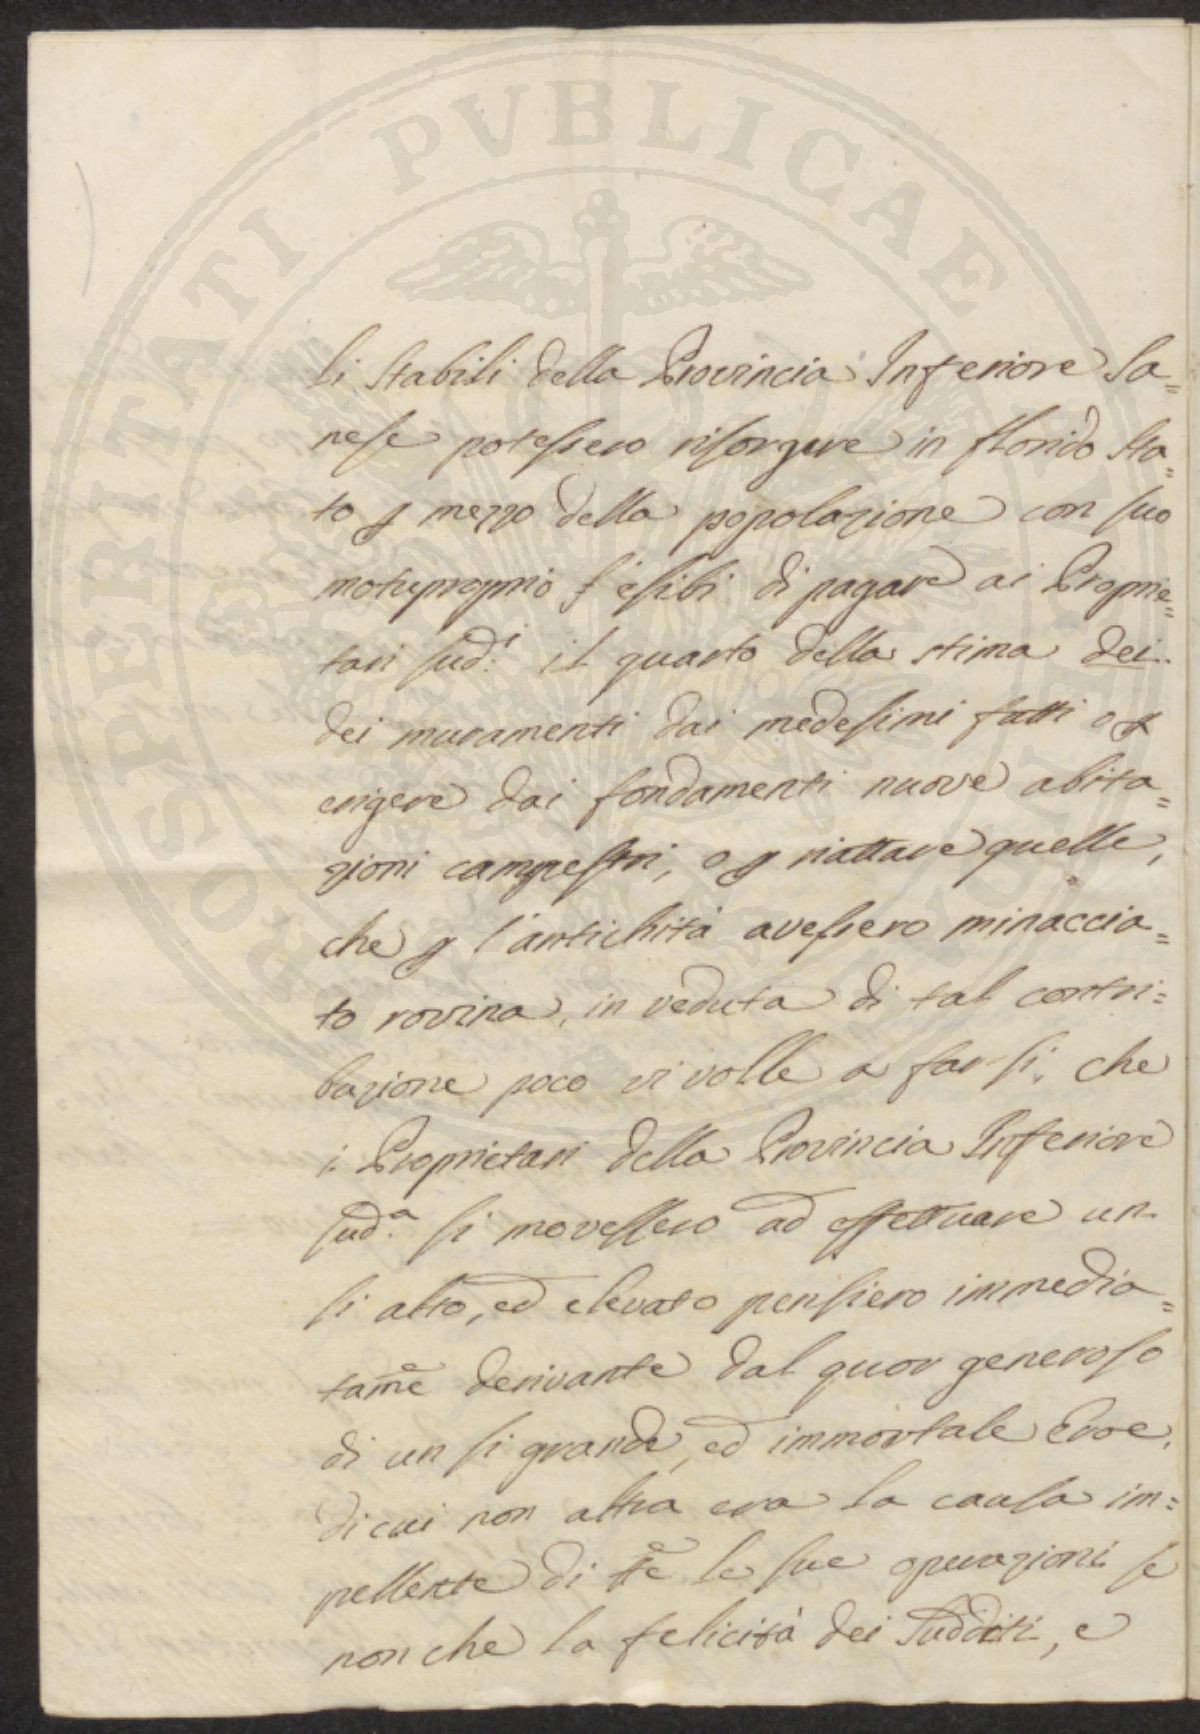 PROSPERITATI PVBLICAE
li stabili della Provincia Inferiore Sa=
nese potessero risorgere in florido sta=
to p mezzo della popolazione con suo
motuproprio s'esibì di pagare ai Proprie=
tari sud.i il quarto della stima dei
dei muramenti dai medesimi fatti o p
erigere dai fondamenti nuove abita=
zioni campestri, o p riattare quelle,
che p l'antichità avessero minaccia=
to rovina, in veduta di tal contri=
buzione poco vi volle a far si, che
i Proprietari della Provincia Inferiore
sud.a si movessero ad effettuare un
si alto, ed elevato pensiero immedia=
tam̃e derivante dal quor generoso
di un si grande, ed immortale Eroe,
di cui non altra era la causa im=
pellente di tt̃e le sue operazioni se
non che la felicità dei Sudditi, e